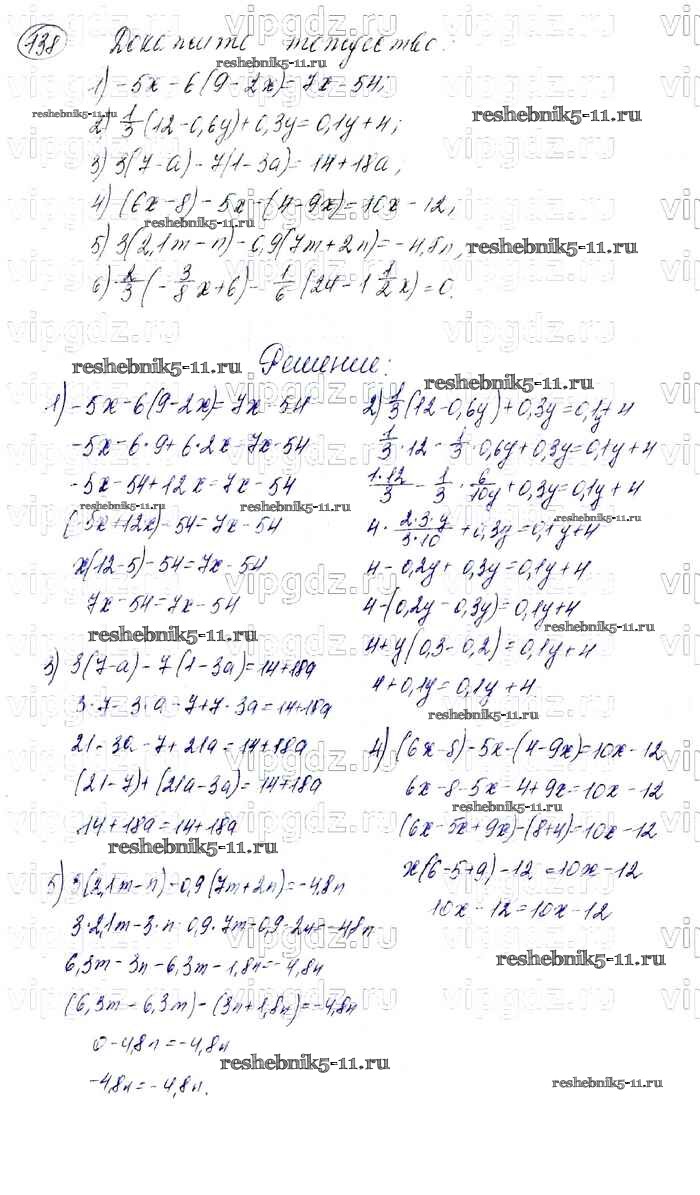 138 Докажите тождество:
1) -5x-6(9-2x)=7x-54;
2) 1/3(12-0,6y)+0,3y=0,1y+4;
3) 3(7-a)-7(1-3a)=14+18a;
4) (6x-8)-5x-(4-9x)=10x-12;
5) 3(2,1m-n)-0,9(7m+2n)=-4,8n;
6) 2/3(-3/8x+6)-1/6(24-1 1/2x)=0.
Решение:
1) -5x-6(9-2x)=7x-54
-5x-6·9+6·2x=7x-54
-5x-54+12x=7x-54
(-5x+12x)-54=7x-54
x(12-5)-54=7x-54
7x-54=7x-54
2) 1/3(12-0,6y)+0,3y=0,1y+4
1/3·12-1/3·0,6y+0,3y=0,1y+4
1·12/3-1/3·6/10y+0,3y=0,1y+4
4·2·3·y/3·10+0,3y=0,1y+4
4-0,2y+0,3y=0,1y+4
4-(0,2y-0,3y)=0,1y+4
4+y(0,3-0,2)=0,1y+4
4+0,1y=0,1y+4
3) 3(7-a)-7(1-3a)=14+18a
3·7-3·a-7+7·3a=14+18a
21-3a-7+21a=14+18a
(21-7)+(21a-3a)=14+18a
14+18a=14+18a
4) (6x-8)-5x-(4-9x)=10x-12
6x-8-5x-4+9x=10x-12
(6x-5x+9x)-(8+4)=10x-12
x(6-5+9)-12=10x-12
10x-12=10x-12
5) 3(2,1m-n)-0,9(7m+2n)=-4,8n
3·2,1m-3·n-0,9·7m-0,9·2n=-4,8n
6,3m-3n-6,3m-1,8n=-4,8n
(6,3m-6,3m)-(3n+1,8n)=-4,8n
0-4,8n=-4,8n
-4,8n=-4,8n.
reshebnik5-11.ru
vipgdz.ru